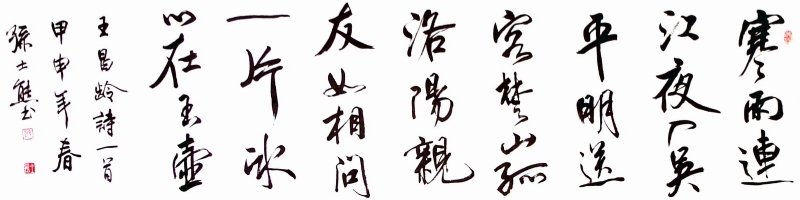 寒雨連
江夜入吳
平明送
客楚山孤
洛陽親
友如相問
一片冰
心在玉壺
王昌齡詩一首
甲申年春
孫士熊书